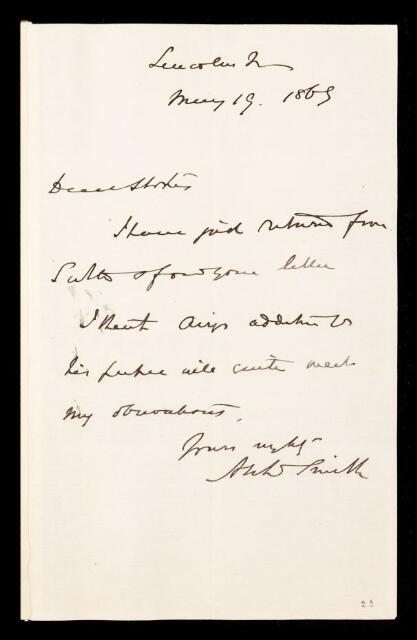 Lincolns In
May 19. 1869
Dear Stokes
I have just returned from
& found your letter
I think Airys addition to
his paper will quite meet
my observations.
Yours
Archd Smith
23